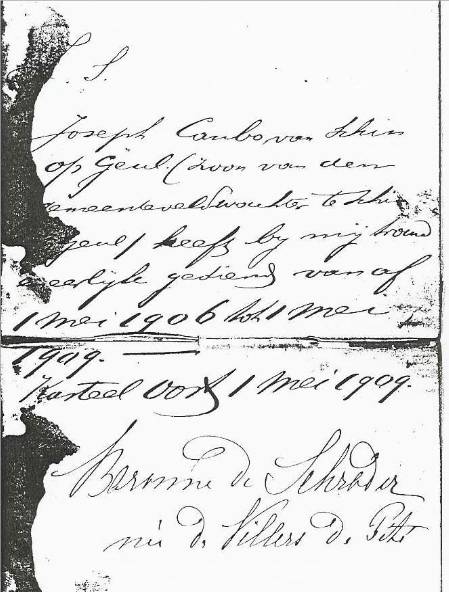 L. S.
Joseph Canbo van Schin
op Geul. (zoon van den
gemeenteveldwachter te Schin
Geul) heeft by mij trouw
eerlijk gediend van af
1 mei 1906 tot 1 mei
1909.
Kasteel Oost 1 Mei 1909.
Baronne de Schröder
née de Villers de Pité